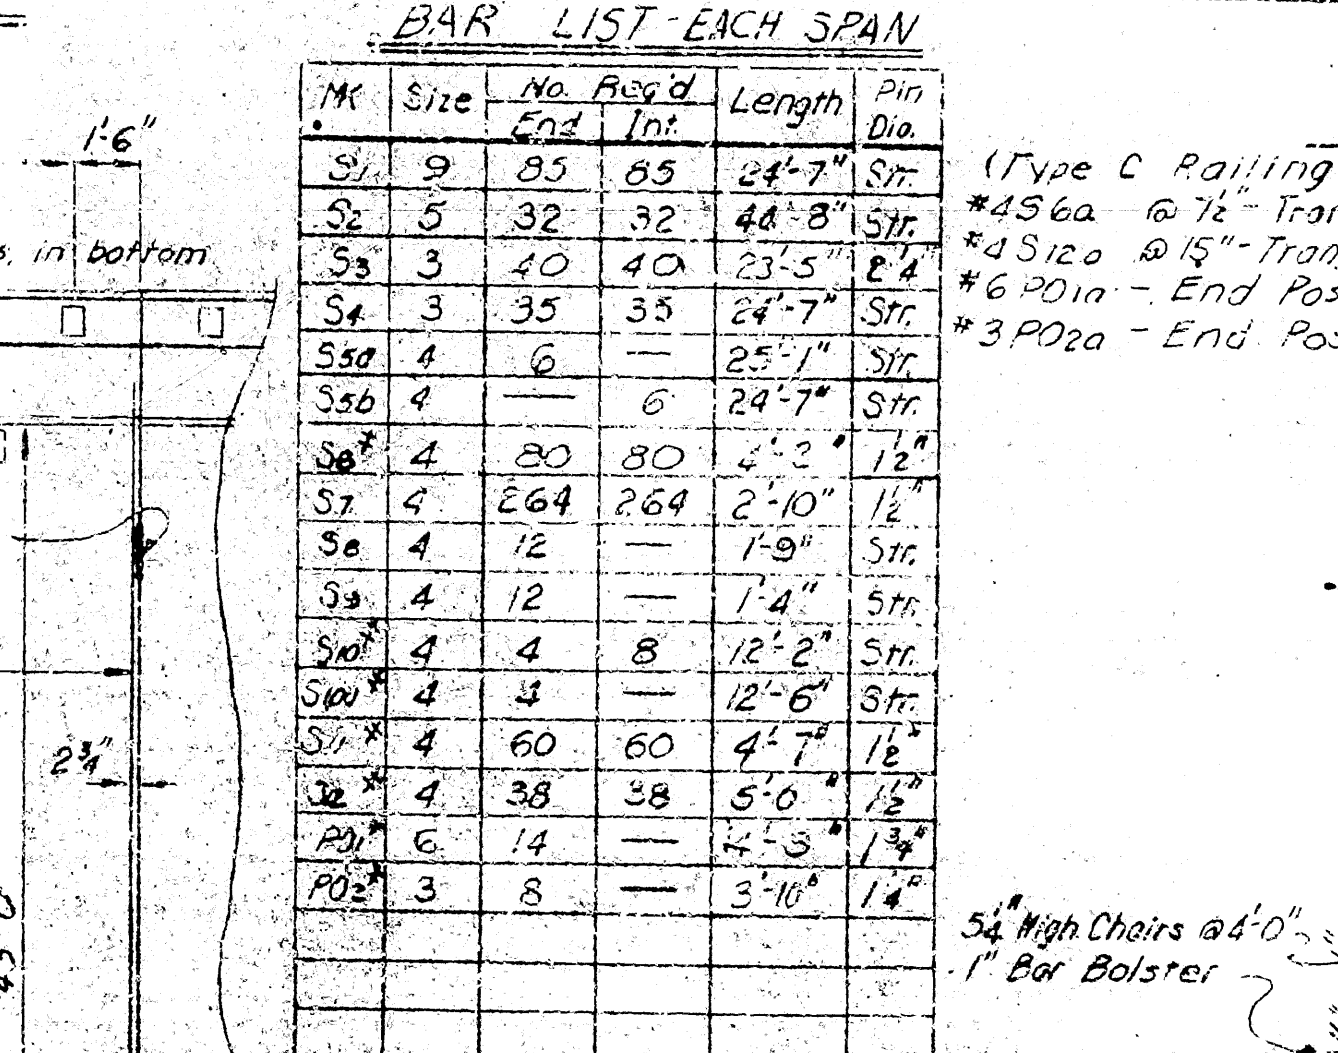 BAR LIST - EACH SPAN
MK Size No. Req'd Length Pin Dia.
End Int.
S1 9 85 85 24'-7" Str.
S2 5 32 32 44'-8" Str.
S3 3 40 40 23'-5" 2¼"
S4 3 35 35 24'-7" Str.
S5a 4 6 — 25'-1" Str.
S5b 4 — 6 24'-7" Str.
4 80 80 4'-2" 1½"
S7 4 264 264 2'-10" 1½"
S8 4 12 — 1'-9" Str.
S9 4 12 — 1'-4" Str.
S10** 4 4 8 12'-2" Str.
4 4 — 12'-6" Str.
S11* 4 60 60 4'-7" 1½"
4 38 38 5'-0" 1½"
PO1* 6 14 — 1¾"
PO2* 3 8 — 3'-10" 1¼"
1'-6"
in bottom
2¾"
(Type C Railing
#4S6a @ 7½" - Tran
#4S12a @ 15" - Tran
#6 PO1a - End Pos
#3 PO2a - End Pos
5¼" High Chairs @ 4'-0"
1" Bar Bolster